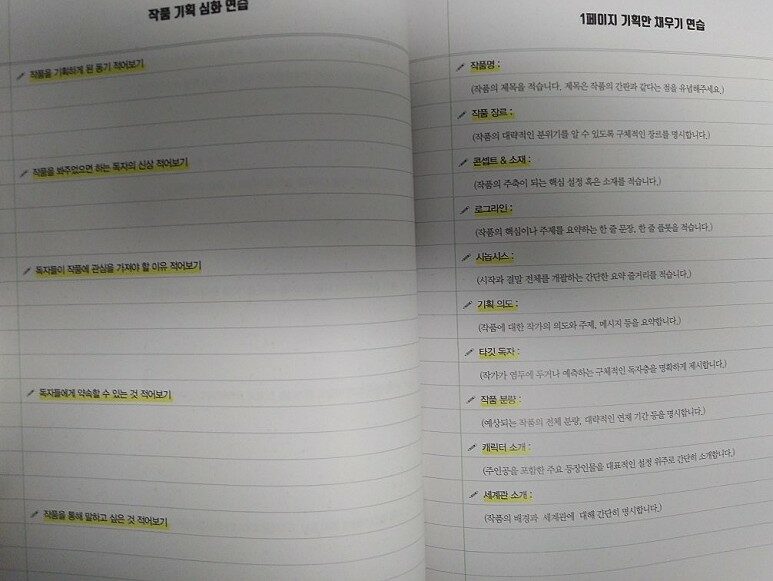 작품 기획 심화 연습
작품을 기획하게 된 동기 적어보기
작품을 봐주었으면 하는 독자의 신상 적어보기
독자들이 작품에 관심을 가져야 할 이유 적어보기
독자들에게 약속할 수 있는 것 적어보기
작품을 통해 말하고 싶은 것 적어보기
1페이지 기획안 채우기 연습
작품명 :
(작품의 제목을 적습니다. 제목은 작품의 간판과 같다는 점을 유념해주세요.)
작품 장르 :
(작품의 대략적인 분위기를 알 수 있도록 구체적인 장르를 명시합니다.)
콘셉트 & 소재 :
(작품의 주축이 되는 핵심 설정 혹은 소재를 적습니다.)
로그라인 :
(작품의 핵심이나 주제를 요약하는 한 줄 문장, 한 줄 플롯을 적습니다.)
시놉시스 :
(시작과 결말 전체를 개괄하는 간단한 요약 줄거리를 적습니다.)
기획 의도 :
(작품에 대한 작가의 의도와 주제, 메시지 등을 요약합니다.)
타깃 독자 :
(작가가 염두에 두거나 예측하는 구체적인 독자층을 명확하게 제시합니다.)
작품 분량 :
(예상되는 작품의 전체 분량, 대략적인 연재 기간 등을 명시합니다.)
캐릭터 소개 :
(주인공을 포함한 주요 등장인물을 대표적인 설정 위주로 간단히 소개합니다.)
세계관 소개 :
(작품의 배경과 세계관에 대해 간단히 명시합니다.)